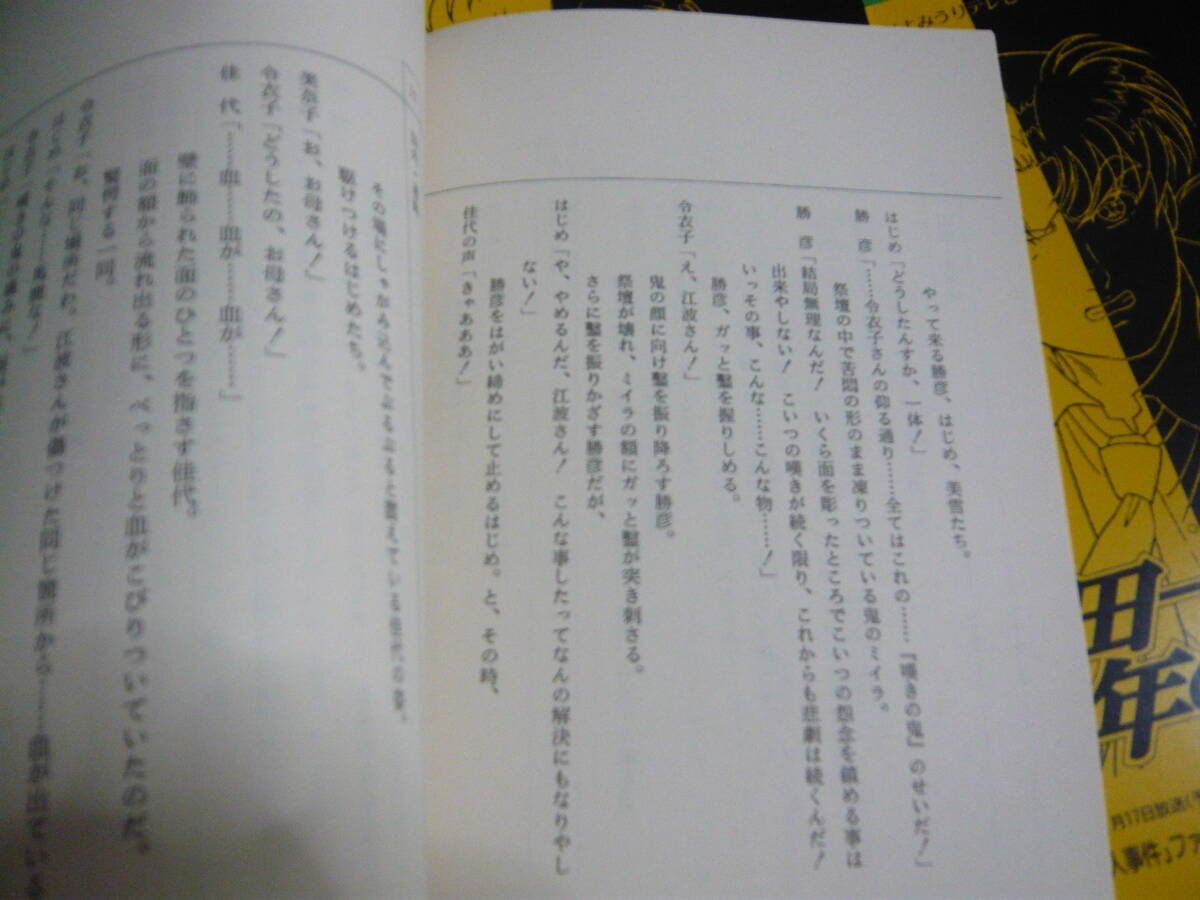 やって来る勝彦、はじめ、美雪たち。
はじめ「どうしたんすか、一体！」
勝　彦「……令衣子さんの仰る通り……全てはこれの……『嘆きの鬼』のせいだ！」
祭壇の中で苦悶の形のまま凍りついている鬼のミイラ。
勝　彦「結局無理なんだ！　いくら面を彫ったところでこいつの怨念を鎮める事は
出来やしない！　こいつの嘆きが続く限り、これからも悲劇は続くんだ！
いっその事、こんな……こんな物……！」
勝彦、ガッと鑿を握りしめる。
令衣子「え、江波さん！」
鬼の顔に向け鑿を振り降ろす勝彦。
祭壇が壊れ、ミイラの額にガッと鑿が突き刺さる。
さらに鑿を振りかざす勝彦だが、
はじめ「や、やめるんだ、江波さん！　こんな事したってなんの解決にもなりやし
ない！」
勝彦をはがい締めにして止めるはじめ。と、その時、
佳代の声「きゃあああ！」
その場にしゃがみ込んでぶるぶると震えている佳代の姿。
駆けつけるはじめたち。
美奈子「お、お母さん！」
令衣子「どうしたの、お母さん！」
佳　代「……血……血が……血が……」
壁に飾られた面のひとつを指さす佳代。
面の額から流れ出る形に、べっとりと血がこびりついていたのだ。
驚愕する一同。
令衣子「お、同じ場所だわ。江波さんが傷つけた同じ箇所から……血が出ている
はじめ「そんな……馬鹿な！」
よみうりテレビ
田
年の
月17日放送
人事件」ファ